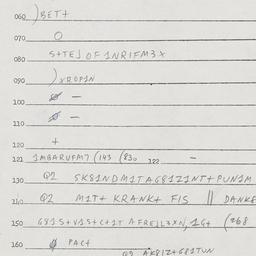 060 )BET+
070 O
080 S+TEJ OF 1NRIFM3X
090 )XROP1N
100 Ø –
110 Ø –
120 +
121 1MBARUFM7 (143 (830 122 –
130 Q2 SK81NDM1TAG81Z1NT+PUN1M
140 Q2 M1T+ KRANK+ FIS || DANK8
150 G81S+V1S+C+1T AFREJL3XN, 1G+ (268
160 PAC+
Q2 AK81Z+G81TUN